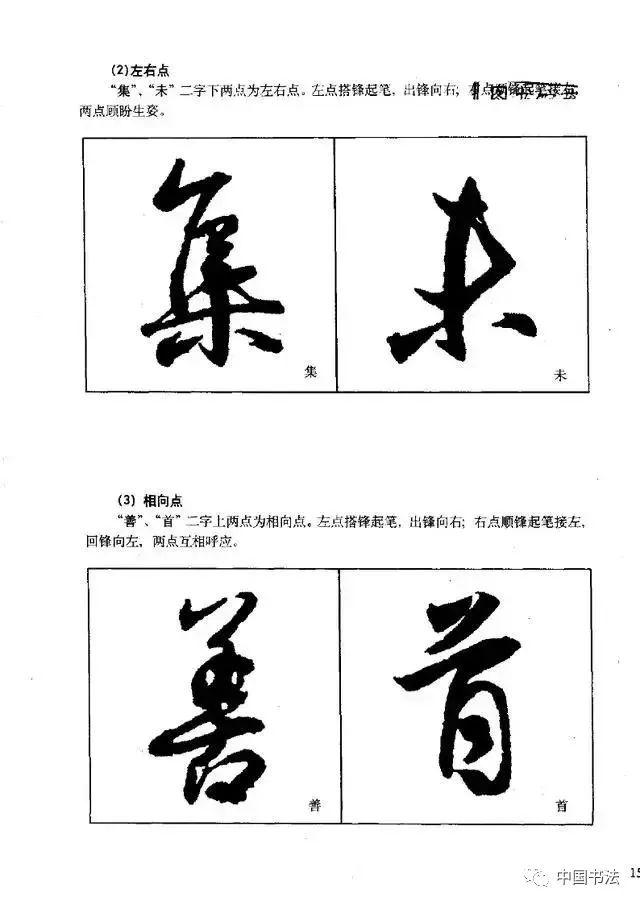 (2)左右点
“集”、“未”二字下两点为左右点。左点搭锋起笔，出锋向右；右点顺锋起笔接左，
两点顾盼生姿。
集 未
集 未
(3) 相向点
“善”、“首”二字上两点为相向点。左点搭锋起笔，出锋向右；右点顺锋起笔接左，
回锋向左，两点互相呼应。
善 首
善 首
中国书法 15